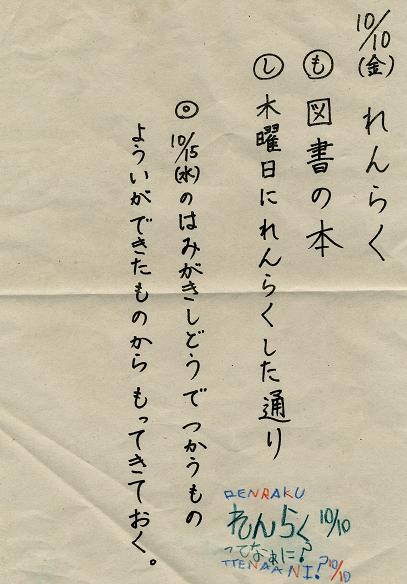 10/10(金) れんらく
も 図書の本
し 木曜日にれんらくした通り
◎ 10/15(水)のはみがきしどうでつかうもの
よういができたものからもってきておく。
RENRAKU
れんらく 10/10
ってなぁに?
TTENAANI? 10/10